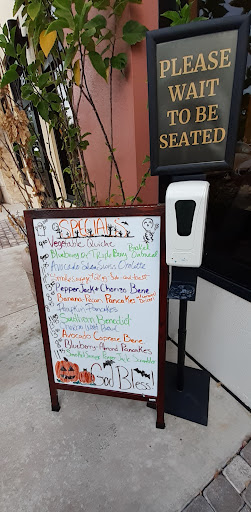 PLEASE
WAIT
TO BE
SEATED
SPECIAL
Vegetable Quiche
Blueberry or Triple Berry Baked Oatmeal
Avocado Omelette
Pepper Jack & Chorizo Bene
Banana Pecan Pancakes
Pumpkin Pancakes
Benedict
Avocado Caprese Bene
Blueberry Almond Pancakes
God Bless!